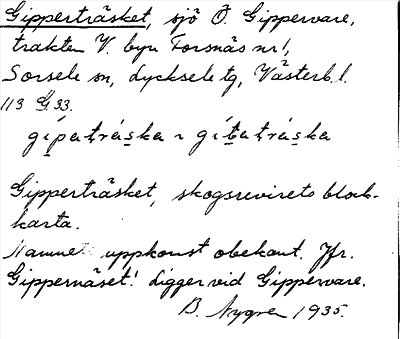 Gipperträsket, sjö Ö. Gippervare,
trakten V. byn Forsnäs nr 1,
Sorsele sn, Lycksele tg, Västerb. l.
113 G 33.
gípatráska ~ gíbatráska
Gipperträsket, skogsrevirets block-
karta.
Namnets uppkomst obekant. Jfr.
Gippernäset! Ligger vid Gippervare.
B. Nygren 1935.